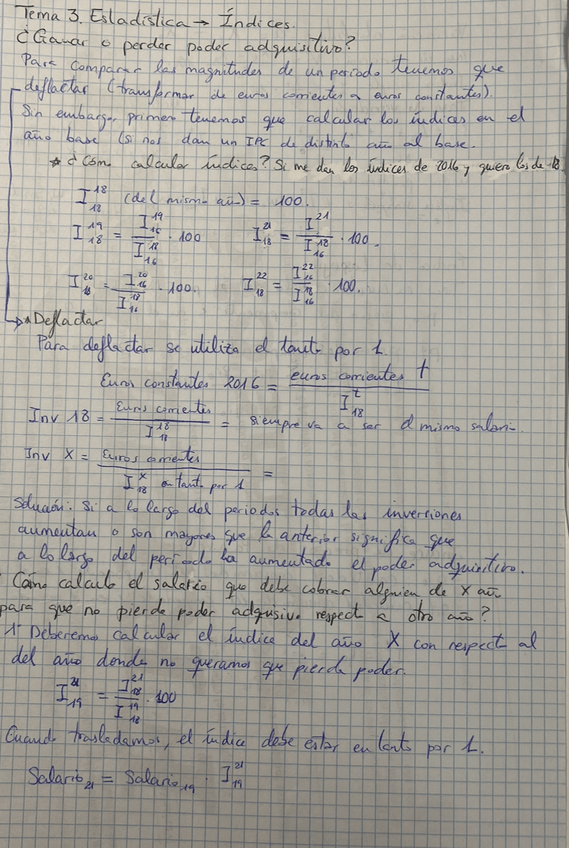 Tema 3. Estadística → Índices.
¿Ganar o perder poder adquisitivo?
Para comparar las magnitudes de un periodo tenemos que
deflactar (transformar de euros corrientes a euros constantes).
Sin embargo, primero tenemos que calcular los índices en el
año base (si nos dan un IPC de distinto año al base.
* ¿Cómo calcular índices? Si me dan los índices de 2016 y quiero los de 18
I^18_18 (del mismo año) = 100.
I^19_18 = I^19_16 / I^18_16 · 100   I^21_18 = I^21 / I^18_16 · 100.
I^20_18 = I^20_16 / I^18_16 · 100.   I^22_18 = I^22_16 / I^18_16 · 100.
→ * Deflactar
Para deflactar se utiliza el tanto por 1.
Euros constantes 2016 = euros corrientes t / I^t_18
Inv 18 = Euros corrientes / I^18_18 = siempre va a ser el mismo salario
Inv X = Euros corrientes / I^x_18 a tanto por 1 =
Solución: Si a lo largo del periodos todas las inversiones
aumentan o son mayores que la anterior significa que
a lo largo del periodo ha aumentado el poder adquisitivo.
Cómo calculo el salario que debe cobrar alguien de X año
para que no pierda poder adqusivo respect a otro año?
1º Deberemos calcular el índice del año X con respect al
del año donde no queramos que pierda poder.
I^21_19 = I^21_18 / I^19_18 · 100
Cuando trasladamos, el índice debe estar en tanto por 1.
Salario_21 = Salario_19 · I^21_19